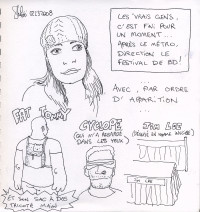 12/5/2008
LES VRAIS GENS,
C'EST FINI POUR
UN MOMENT...
APRÈS LE MÉTRO,
DIRECTION LE
FESTIVAL DE BD!
...
AVEC, PAR ORDRE
D'APPARITION
...
FAT TOMMY
CYCLOPE
(QUI M'A
DANS LES YEUX)
JIM LEE
JIM LEE
ET SON SAC À DOS
TRICOTÉ MAIN